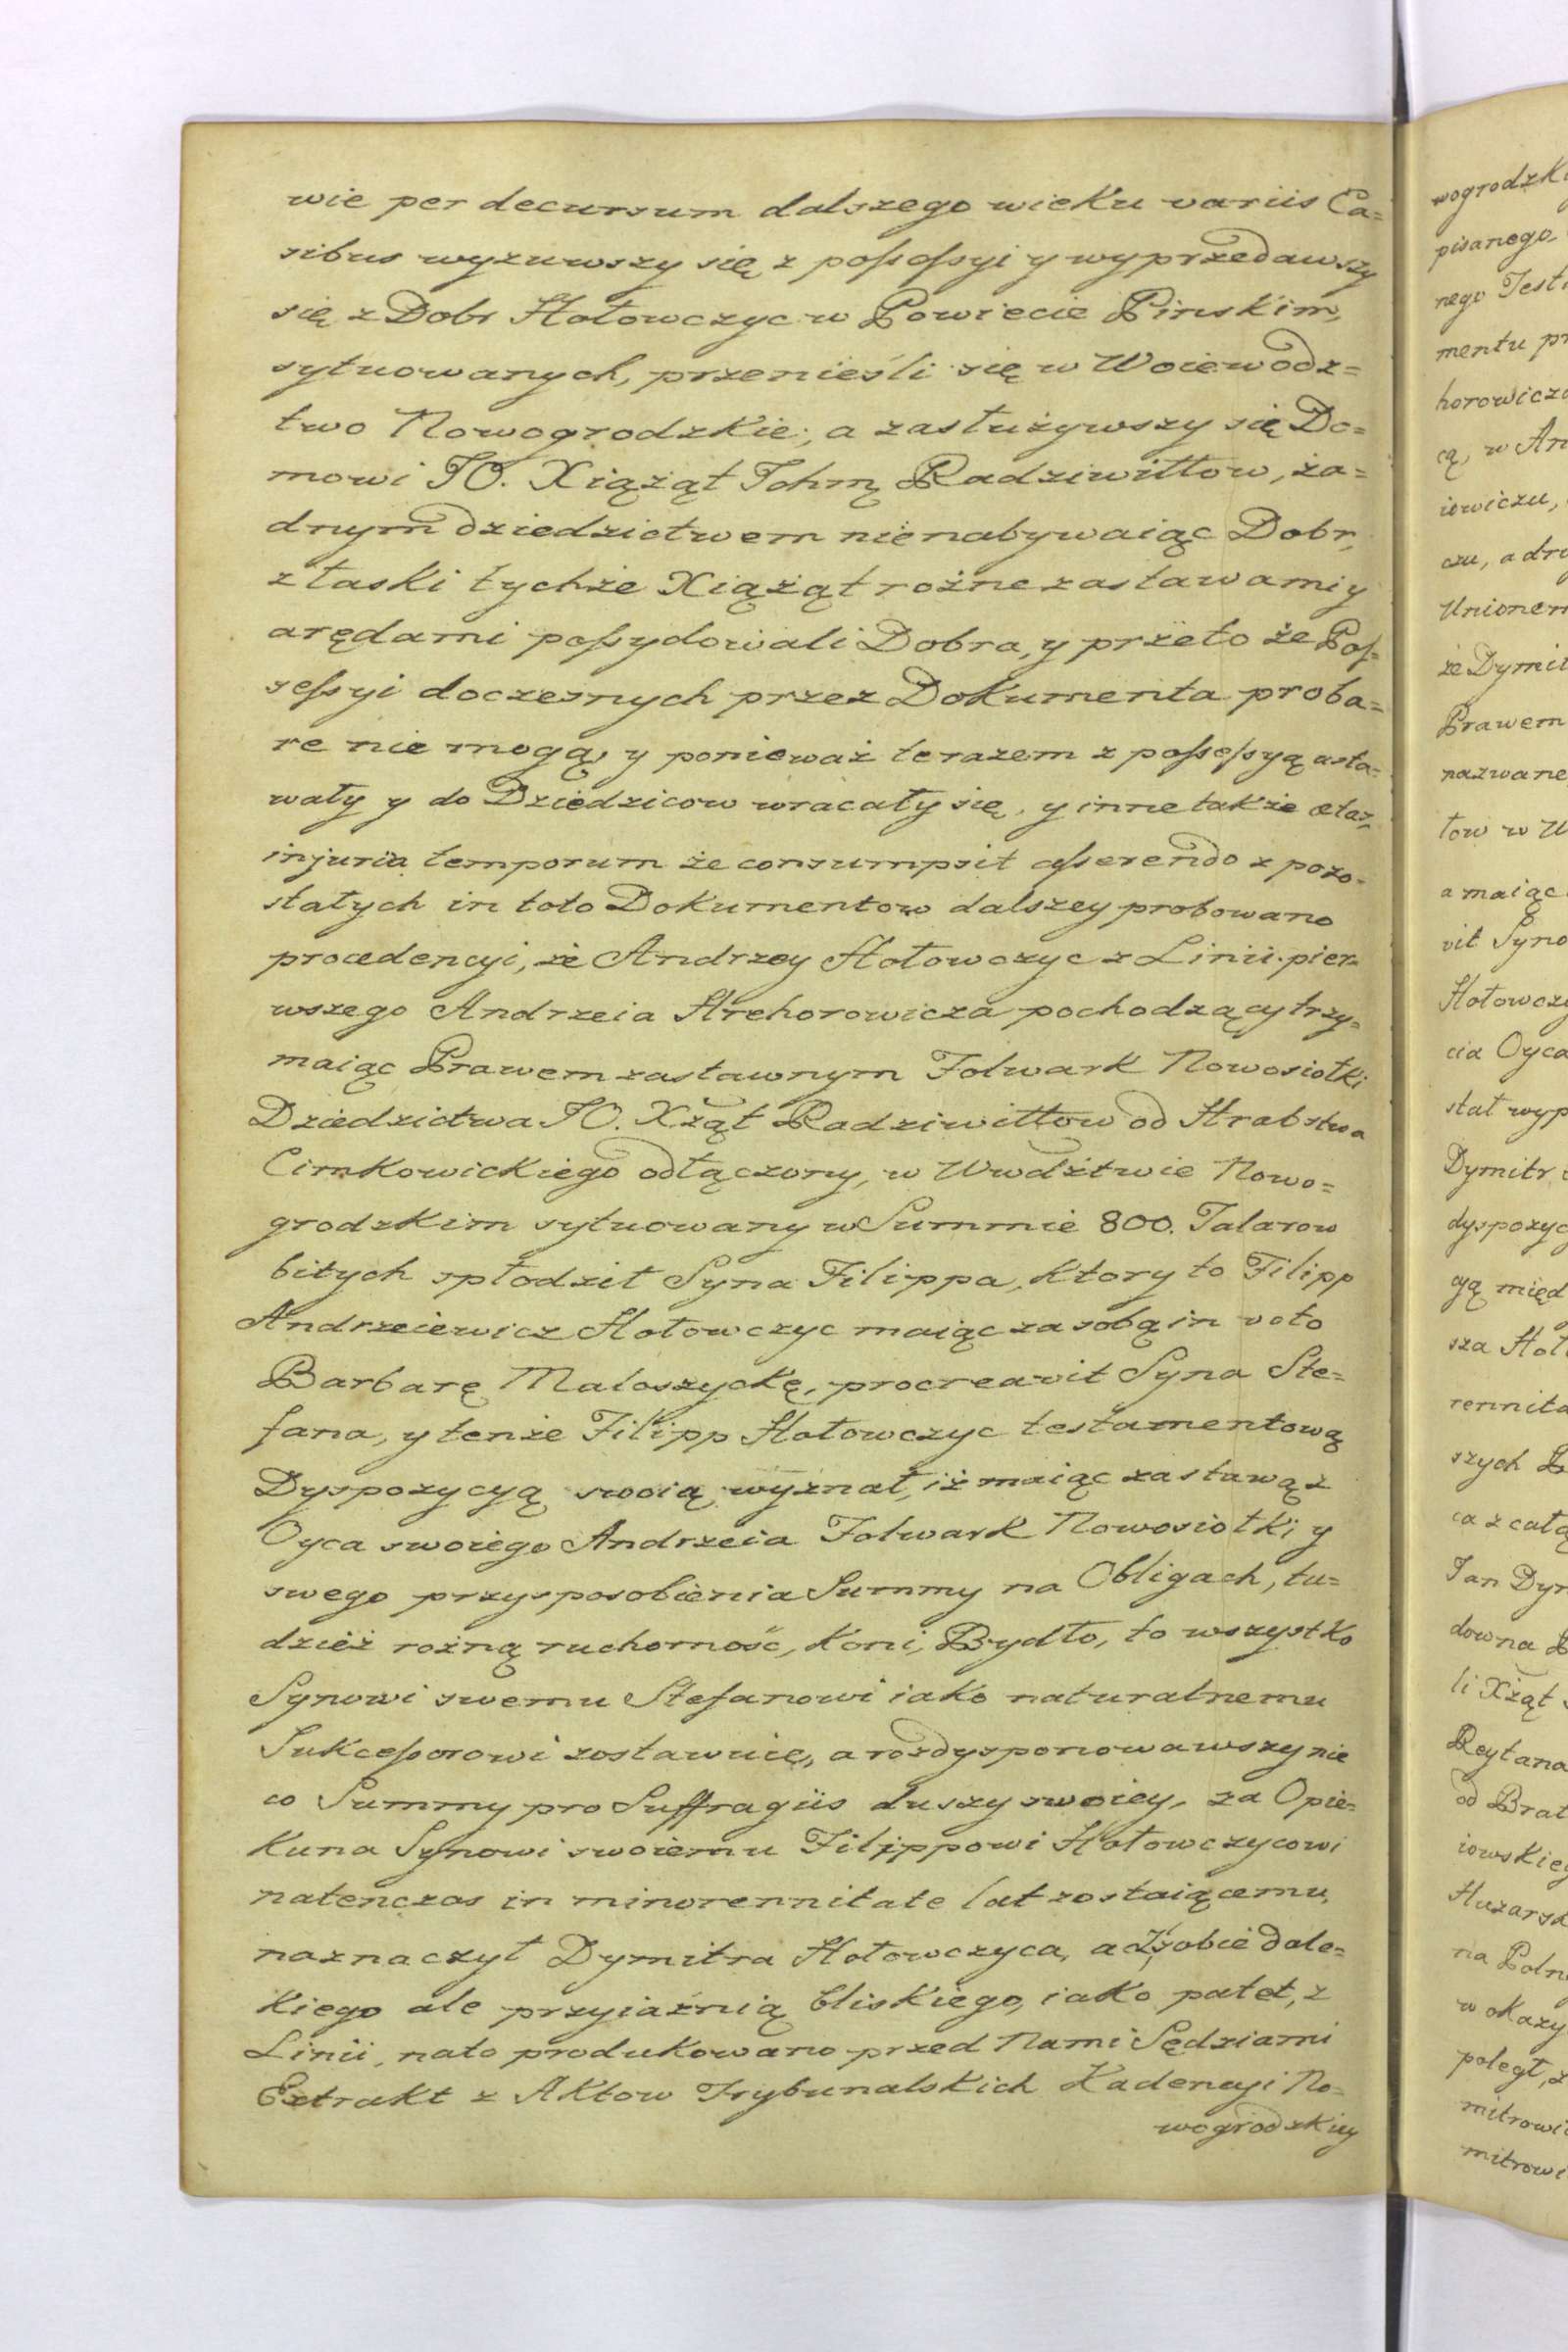 wie per decursum dalszego wieku variis Ca=
sibus wyzuwszy się z possessyi y wyprzedawszy
się z Dobr Hołowczyc w Powiecie Pinskim,
sytuowanych, przenieśli się w Woiewodz=
two Nowogrodzkie; a zasłużywszy się Do=
mowi JO. Xiążąt Ichmę Radziwiłłow, ża=
dnym dziedzictwem nienabywaiąc Dobr,
z łaski tychże Xiążąt rożne zastawami y
arędami possydowali Dobra, y przeto że Pos=
sessyi doczesnych przez Dokumenta proba=
re nie mogą, y ponieważ te razem z possessyą usta=
wały y do Dziedzicow wracały się, y inne także
injuria temporum że consumpsit asserendo z pozo=
stałych in toto Dokumentow dalszey probowano
procedencyi, że Andrzey Hołowczyc z Linii pier=
wszego Andrzeia Hrehorowicza pochodzący trzy=
maiąc Prawem zastawnym Folwark Nowosiołki
Dziedzictwa JO. Xżąt Radziwiłłow od Hrabstwa
Cimkowickiego odłączony, w Wwdźtwie Nowo=
grodzkim sytuowany w Summie 800. Talarow
bitych spłodził Syna Filippa, ktory to Filipp
Andrzeiewicz Hołowczyc maiąc za sobą in voto
Barbarę Małoszyckę, procreavit Syna Ste=
fana, y tenże Filipp Hołowczyc testamentową
Dyspozycyą swoią wyznał, iż maiąc zastawą z
Oyca swoiego Andrzeia Folwark Nowosiołki y
swego przysposobienia Summy na Obligach, tu=
dzież rożną ruchomość, Koni, Bydło, to wszystko
Synowi swemu Stefanowi iako naturalnemu
Sukcessorowi zostawuię, a rozdysponowawszy nie
co Summy pro Suffragiis duszy swoiey, za Opie=
kuna Synowi swoiemu Filippowi Hołowczycowi
natenczas in minorennitate lat zostaiącemu,
naznaczył Dymitra Hołowczyca, acz sobie dale=
kiego ale przyiaźnią bliskiego, iako patet, z
Linii, nato produkowano przed Nami Sędziami
Extrakt z Aktow Trybunalskich Kadencyi No=
wogrodzkiey
wogrodzki
pisanego
nego
mentu
w An
iewiczu,
czu, a
Unionem
że
Prawem
a maiąc
vit Syno
cia Oyca
stał
Dymitr
szych
Jan
Reytana
od Brat
w okazy
poległ,